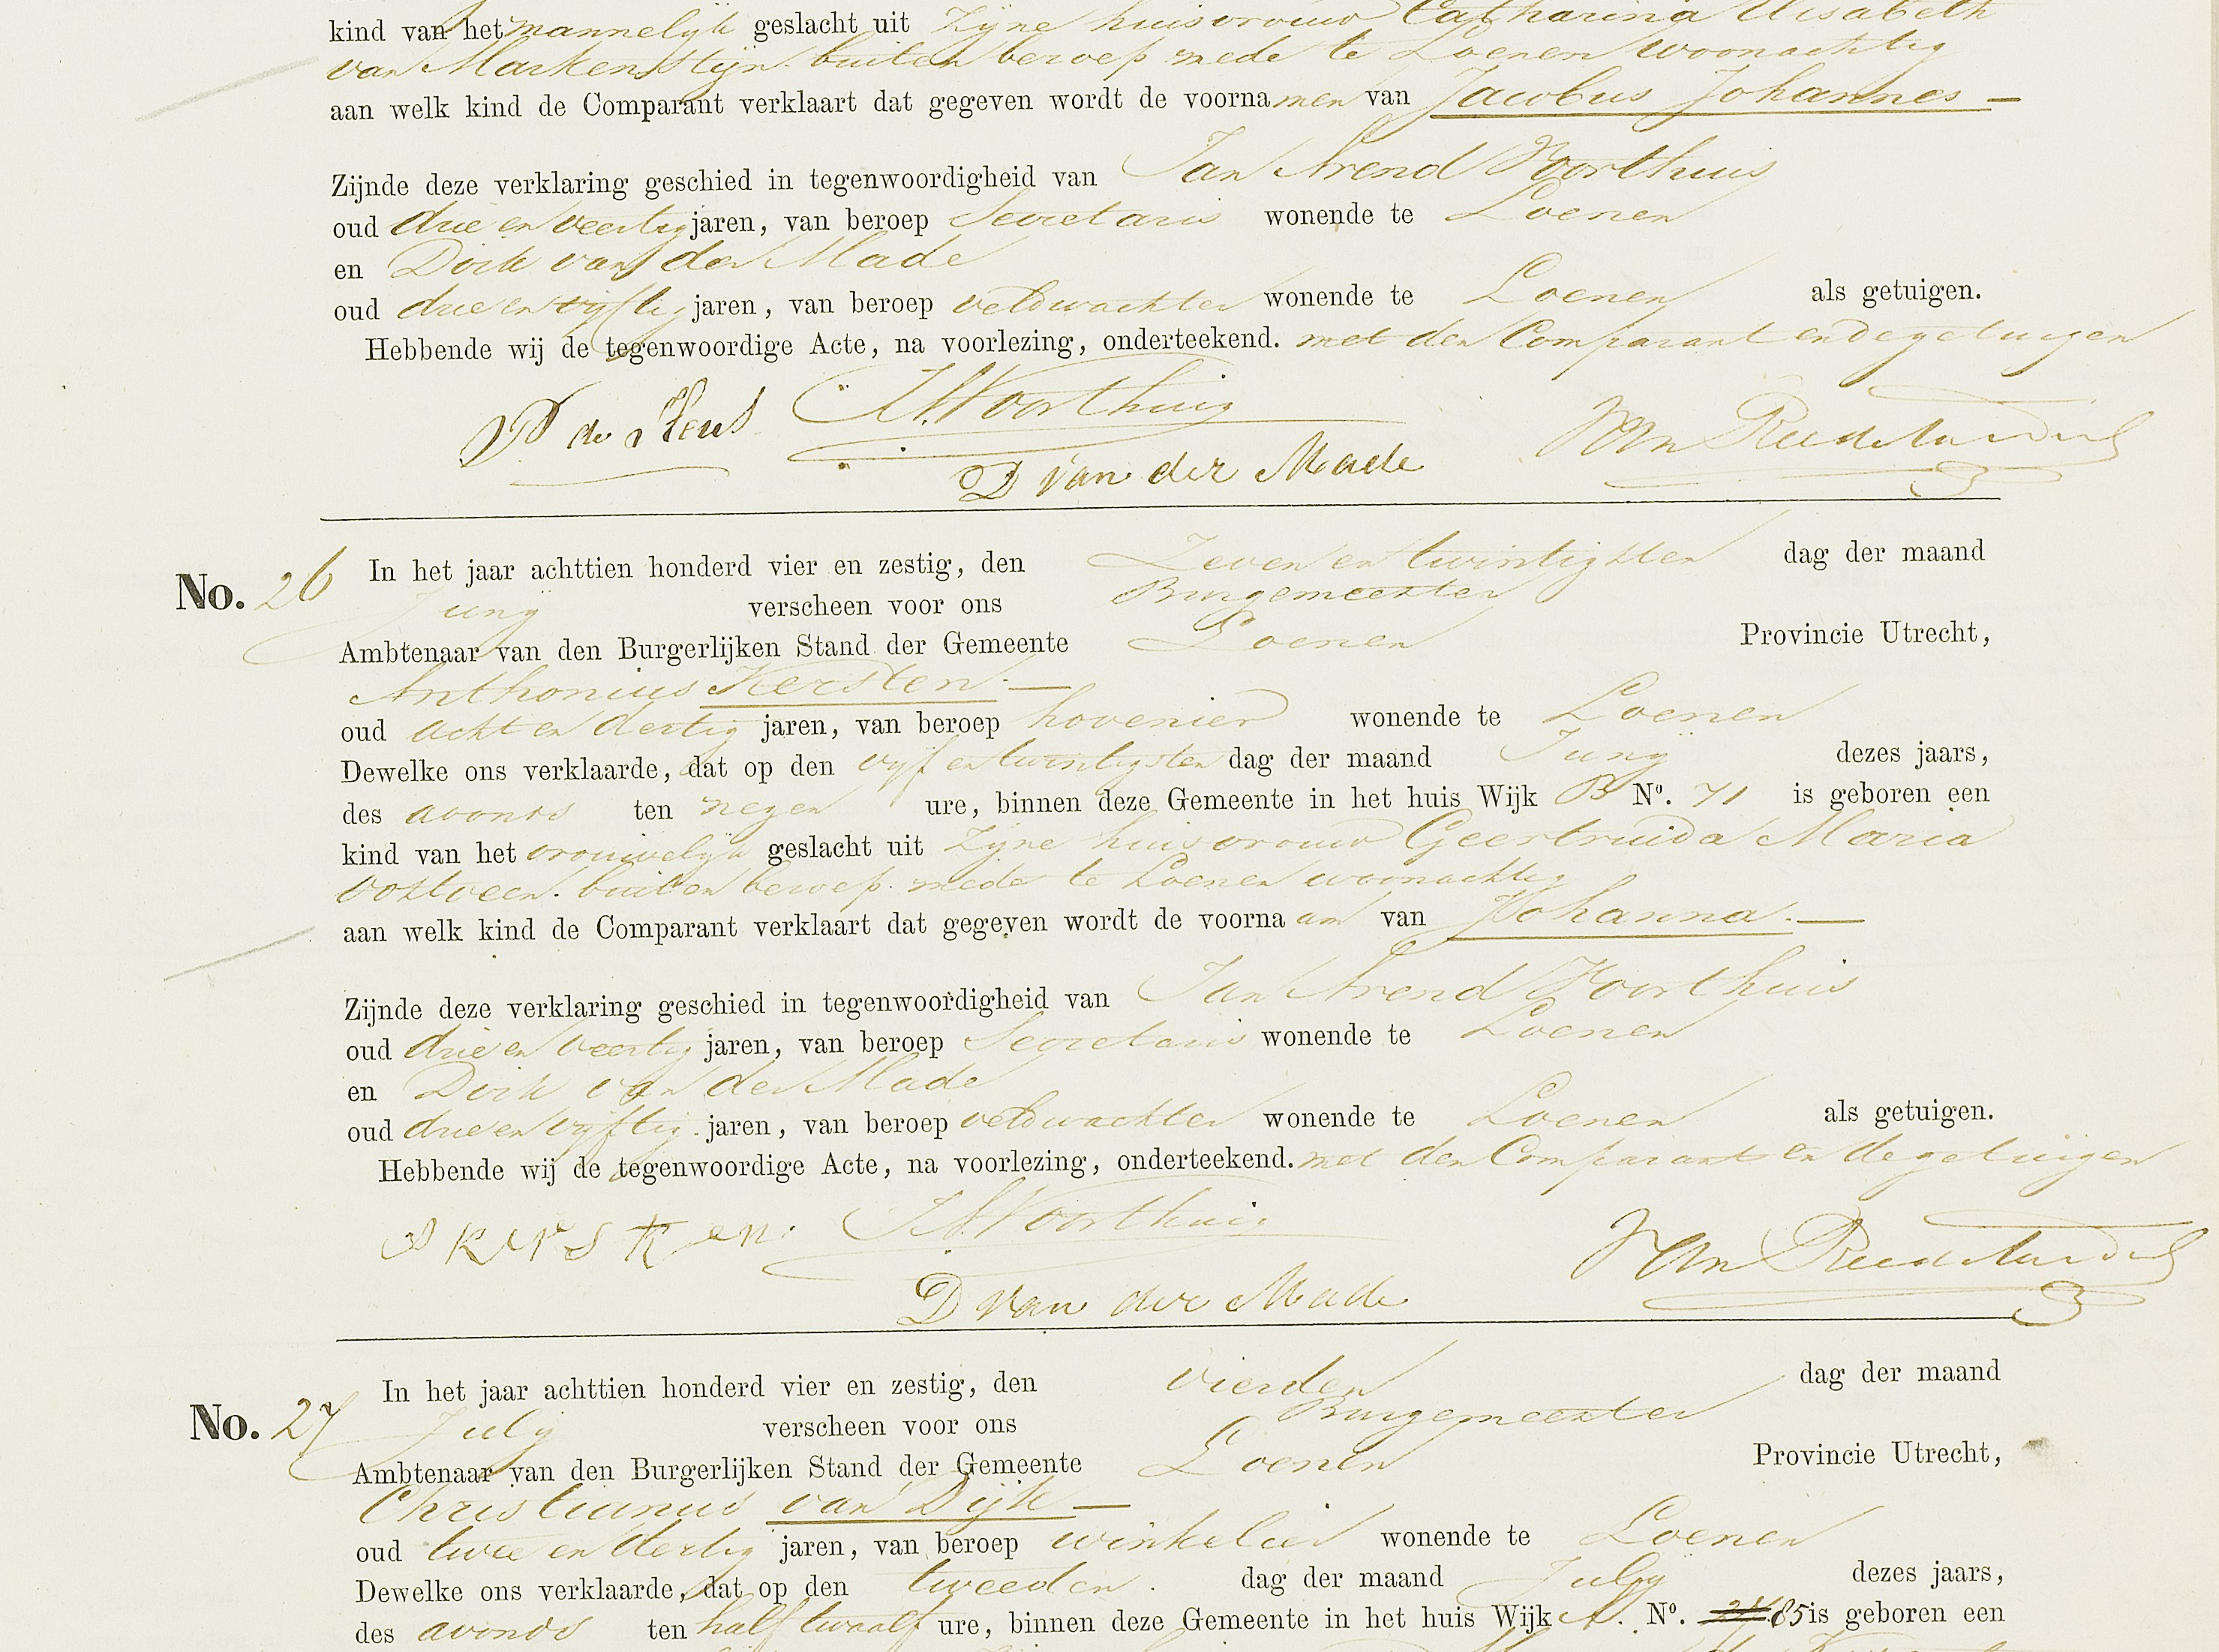 kind van het mannelijk geslacht uit Zijne huisvrouw Catharina Elisabeth
van Markensteijn. buiten beroep mede te Loenen woonachtig
aan welk kind de Comparant verklaart dat gegeven wordt de voornamen van Jacobus Johannes –
Zijnde deze verklaring geschied in tegenwoordigheid van Jan Arend Voorthuis
oud drie en veertig jaren, van beroep Secretaris wonende te Loenen
en Dirk van der Made
oud drie en vijftig jaren, van beroep veldwachter wonende te Loenen als getuigen.
Hebbende wij de tegenwoordige Acte, na voorlezing, onderteekend. met den Comparant en de getuigen
P de Heus JAVoorthuis
D van der Made
No. 26 In het jaar achttien honderd vier en zestig, den Zeven en twintigsten dag der maand
Junij verscheen voor ons Burgemeester
Ambtenaar van den Burgerlijken Stand der Gemeente Loenen Provincie Utrecht,
Anthonius Kersten. –
oud acht en dertig jaren, van beroep hovenier wonende te Loenen
Dewelke ons verklaarde, dat op den vijf en twintigsten dag der maand Junij dezes jaars,
des avonds ten negen ure, binnen deze Gemeente in het huis Wijk B No. 71 is geboren een
kind van het vrouwelijk geslacht uit Zijne huisvrouw Geertruida Maria
Oostveen. buiten beroep. mede te Loenen woonachtig
aan welk kind de Comparant verklaart dat gegeven wordt de voornaam van Johanna. –
Zijnde deze verklaring geschied in tegenwoordigheid van Jan Arend Voorthuis
oud drie en veertig jaren, van beroep Secretaris wonende te Loenen
en Dirk van der Made
oud drie en vijftig jaren, van beroep veldwachter wonende te Loenen als getuigen.
Hebbende wij de tegenwoordige Acte, na voorlezing, onderteekend. met den Comparant en de getuigen
A Kersten. JAVoorthuis
D van der Made
No. 27 In het jaar achttien honderd vier en zestig, den vierden dag der maand
July verscheen voor ons Burgemeester
Ambtenaar van den Burgerlijken Stand der Gemeente Loenen Provincie Utrecht,
Christianus van Dijk –
oud twee en dertig jaren, van beroep winkelier wonende te Loenen
Dewelke ons verklaarde, dat op den tweeden. dag der maand July dezes jaars,
des avonds ten half twaalf ure, binnen deze Gemeente in het huis Wijk A. No. 85 is geboren een